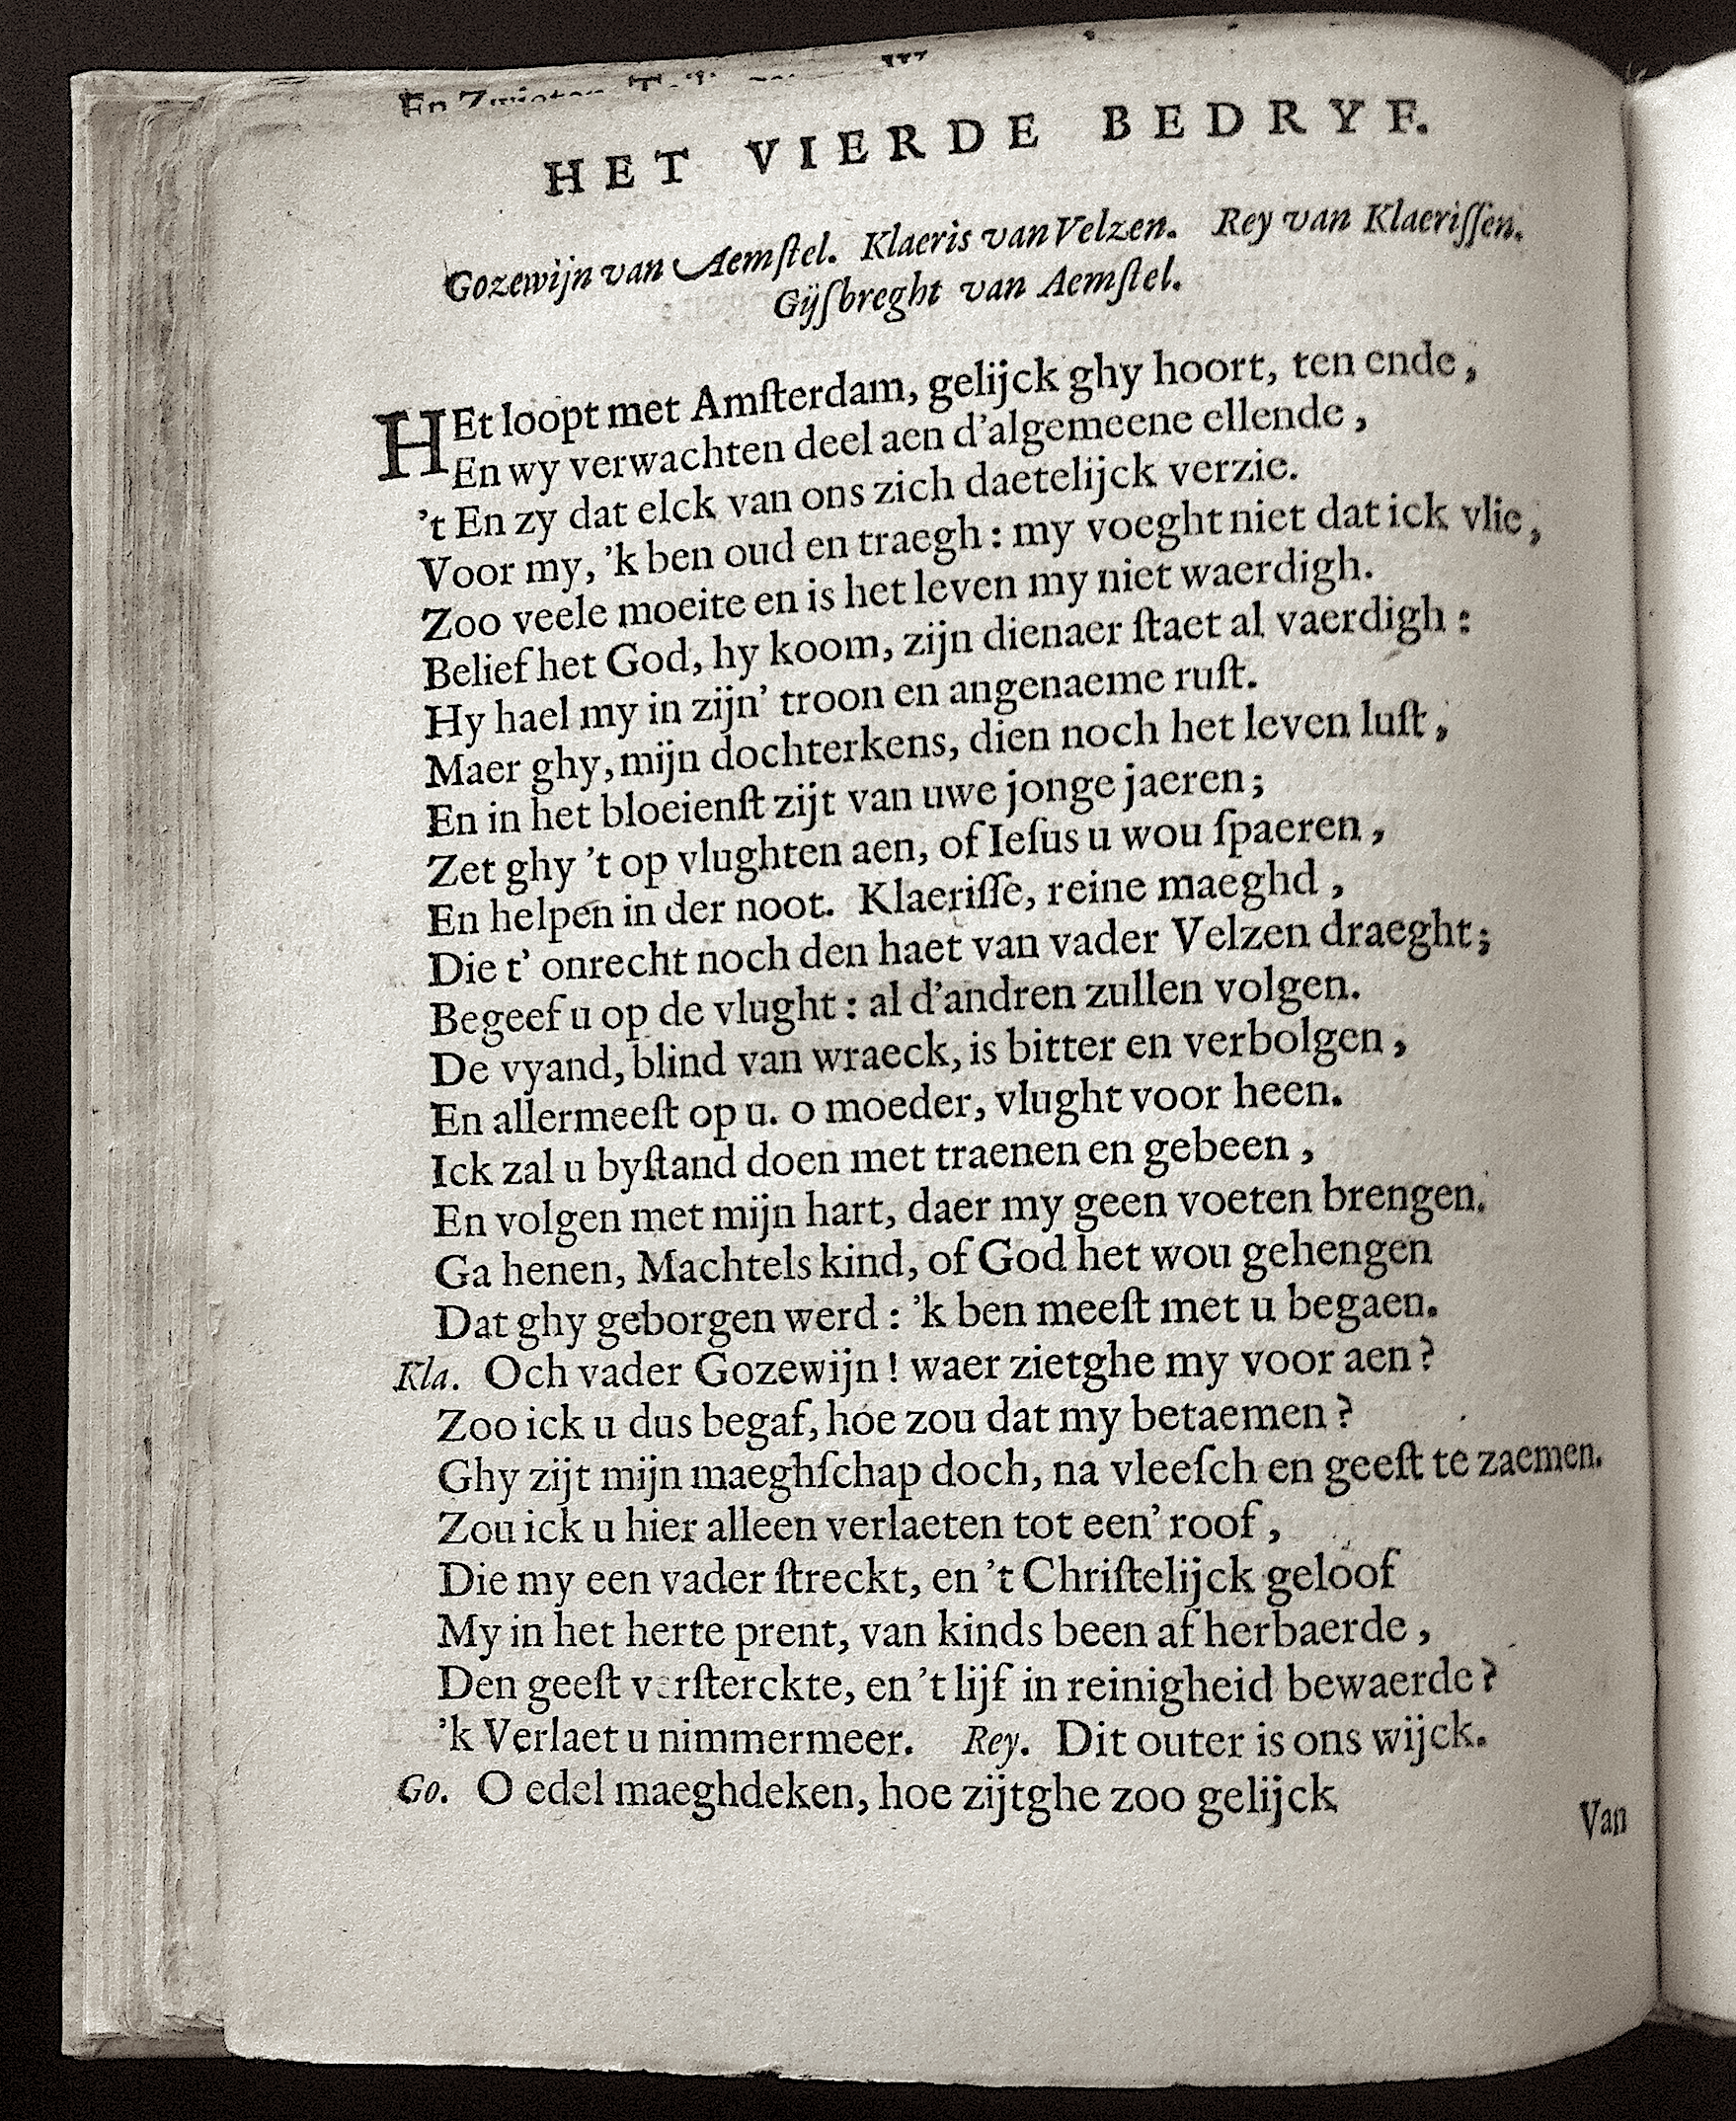 HET VIERDE BEDRYF.
Gozewijn van Aemſtel. Klaeris van Velzen. Rey van Klaeriſſen.
Gijſbreght van Aemſtel.
HEt loopt met Amſterdam, gelijck ghy hoort, ten ende,
En wy verwachten deel aen d'algemeene ellende,
't En zy dat elck van ons zich daetelijck verzie.
Voor my, 'k ben oud en traegh: my voeght niet dat ick vlie,
Zoo veele moeite en is het leven my niet waerdigh.
Belief het God, hy koom, zijn dienaer ſtaet al vaerdigh:
Hy hael my in zijn' troon en angenaeme ruſt.
Maer ghy, mijn dochterkens, dien noch het leven luſt,
En in het bloeienſt zijt van uwe jonge jaeren;
Zet ghy 't op vlughten aen, of Ieſus u wou ſpaeren,
En helpen in der noot. Klaeriſſe, reine maeghd,
Die t' onrecht noch den haet van vader Velzen draeght;
Begeef u op de vlught: al d'andren zullen volgen.
De vyand, blind van wraeck, is bitter en verbolgen,
En allermeeſt op u. o moeder, vlught voor heen.
Ick zal u byſtand doen met traenen en gebeen,
En volgen met mijn hart, daer my geen voeten brengen.
Ga henen, Machtels kind, of God het wou gehengen
Dat ghy geborgen werd: 'k ben meeſt met u begaen.
Kla. Och vader Gozewijn! waer zietghe my voor aen?
Zoo ick u dus begaf, hoe zou dat my betaemen?
Ghy zijt mijn maeghſchap doch, na vleeſch en geeſt te zaemen.
Zou ick u hier alleen verlaeten tot een' roof,
Die my een vader ſtreckt, en 't Chriſtelijck geloof
My in het herte prent, van kinds been af herbaerde,
Den geeſt verſterckte, en 't lijf in reinigheid bewaerde?
'k Verlaet u nimmermeer. Rey. Dit outer is ons wijck.
Go. O edel maeghdeken, hoe zijtghe zoo gelijck
Van